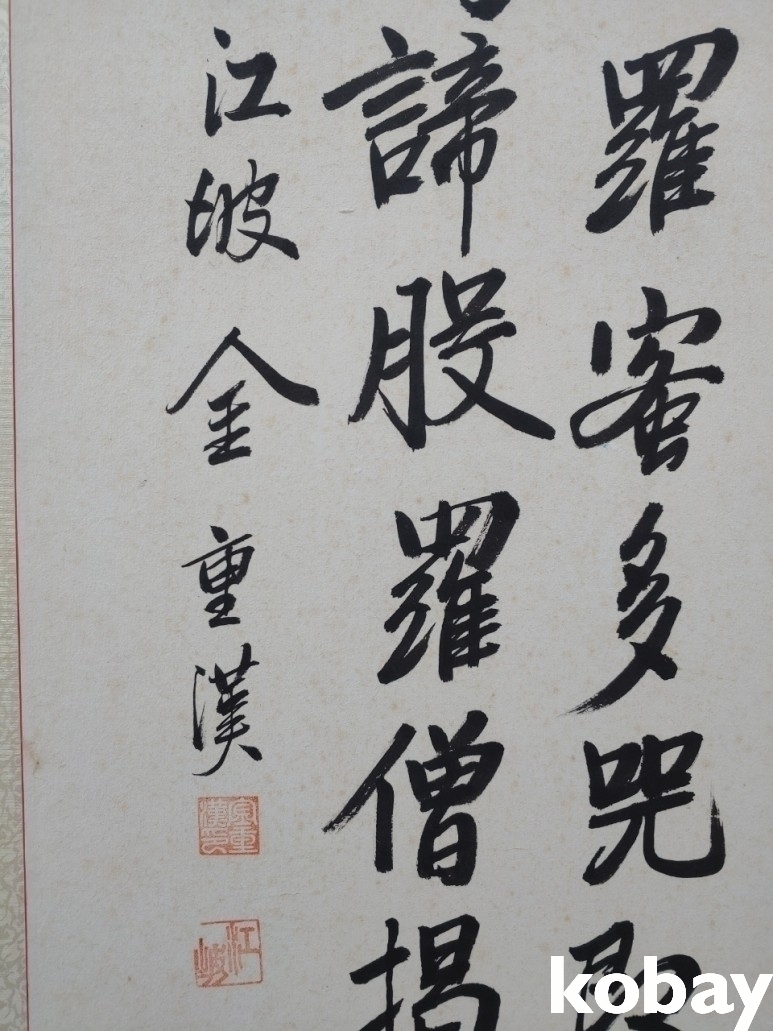 羅蜜多咒即
諦股羅僧揭
江坡 金重漢
金重漢印
江坡
kobay